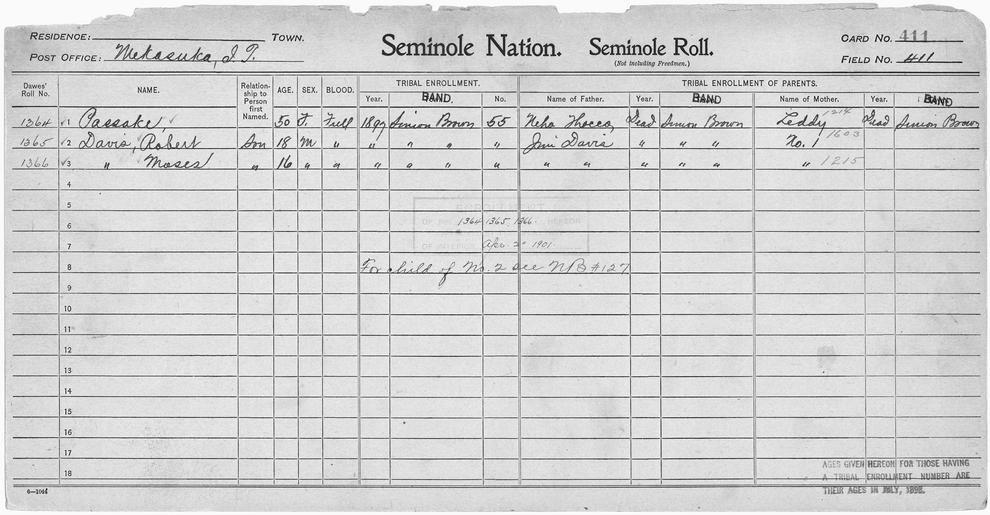 RESIDENCE: TOWN. Seminole Nation. Seminole Roll. CARD NO. 411
POST OFFICE: Mekasuka, I. T. (Not including Freedmen.) FIELD NO. 411
Dawes' Roll No. NAME. Relationship to Person first Named. AGE. SEX. BLOOD. TRIBAL ENROLLMENT. TRIBAL ENROLLMENT OF PARENTS.
Year. BAND. No. Name of Father. Year. BAND Name of Mother. Year. BAND
1364 √1 Passake, √ 50 F. Full 1897 Simon Brown 55 Neha Thocco, Dead Simon Brown Leddy 1214 Dead Simon Brown
1365 √2 Davis, Robert Son 18 M " " " " " Jim Davis " " " No. 1 1603
1366 √3 " Moses " 16 " " " " " " " " " " " " 1215
4
5
ENROLLMENT
6 1364 1365 1366 HEREON
7 OF INTERIOR Apr. 2 1901
8 For child of No. 2 see NB #127
9
10
11
12
13
14
15
16
17
AGES GIVEN HEREON FOR THOSE HAVING
18 A TRIBAL ENROLLMENT NUMBER ARE
THEIR AGES IN JULY, 1898.